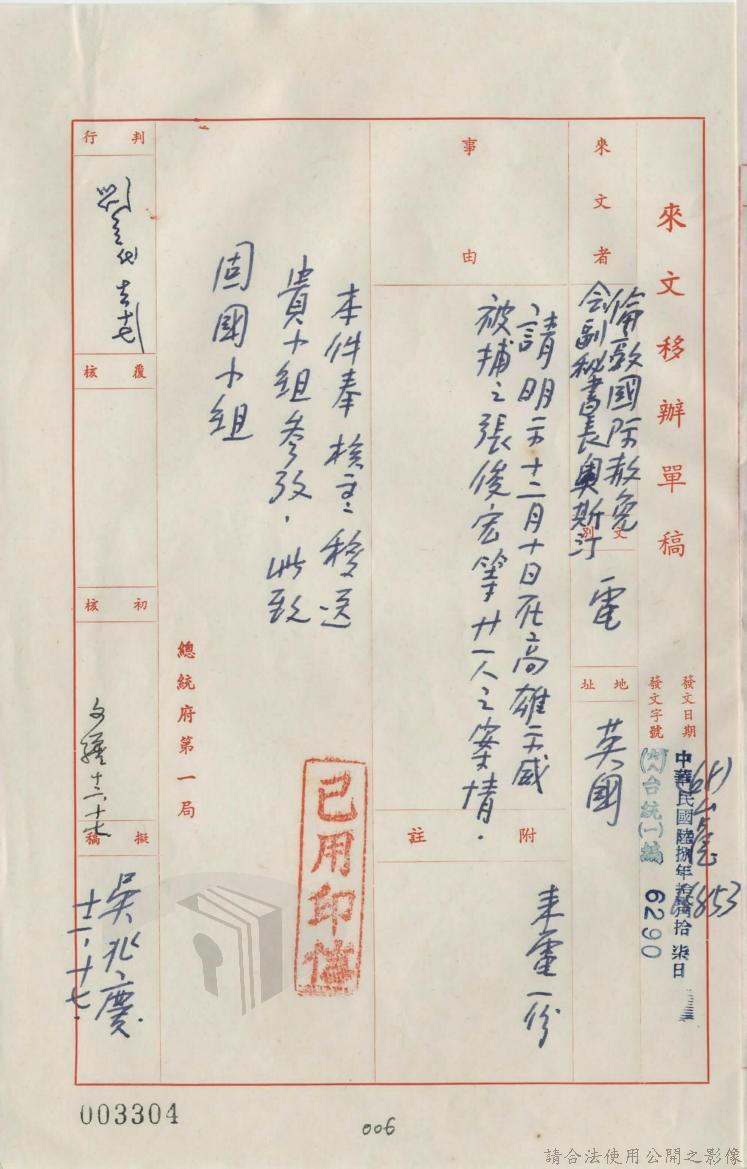 來文移辦單稿
發文日期
中華民國陸捌年拾貳月拾柒日
發文字號
(六八)台統(一)編 6290
來文者
倫敦國際赦免
会副秘書長奧斯汀
文別
電
地址
英國
事由
請明示十二月十日在高雄示威
被捕之張俊宏等廿一人之案情.
附註
来電一份
本件奉 核定移送
貴小組參攷.此致
固國小組
總統府第一局
已用印信
判行
覆核
初核
十二十七
擬稿
吳兆慶
十二.十七.
003304
006
請合法使用公開之影像